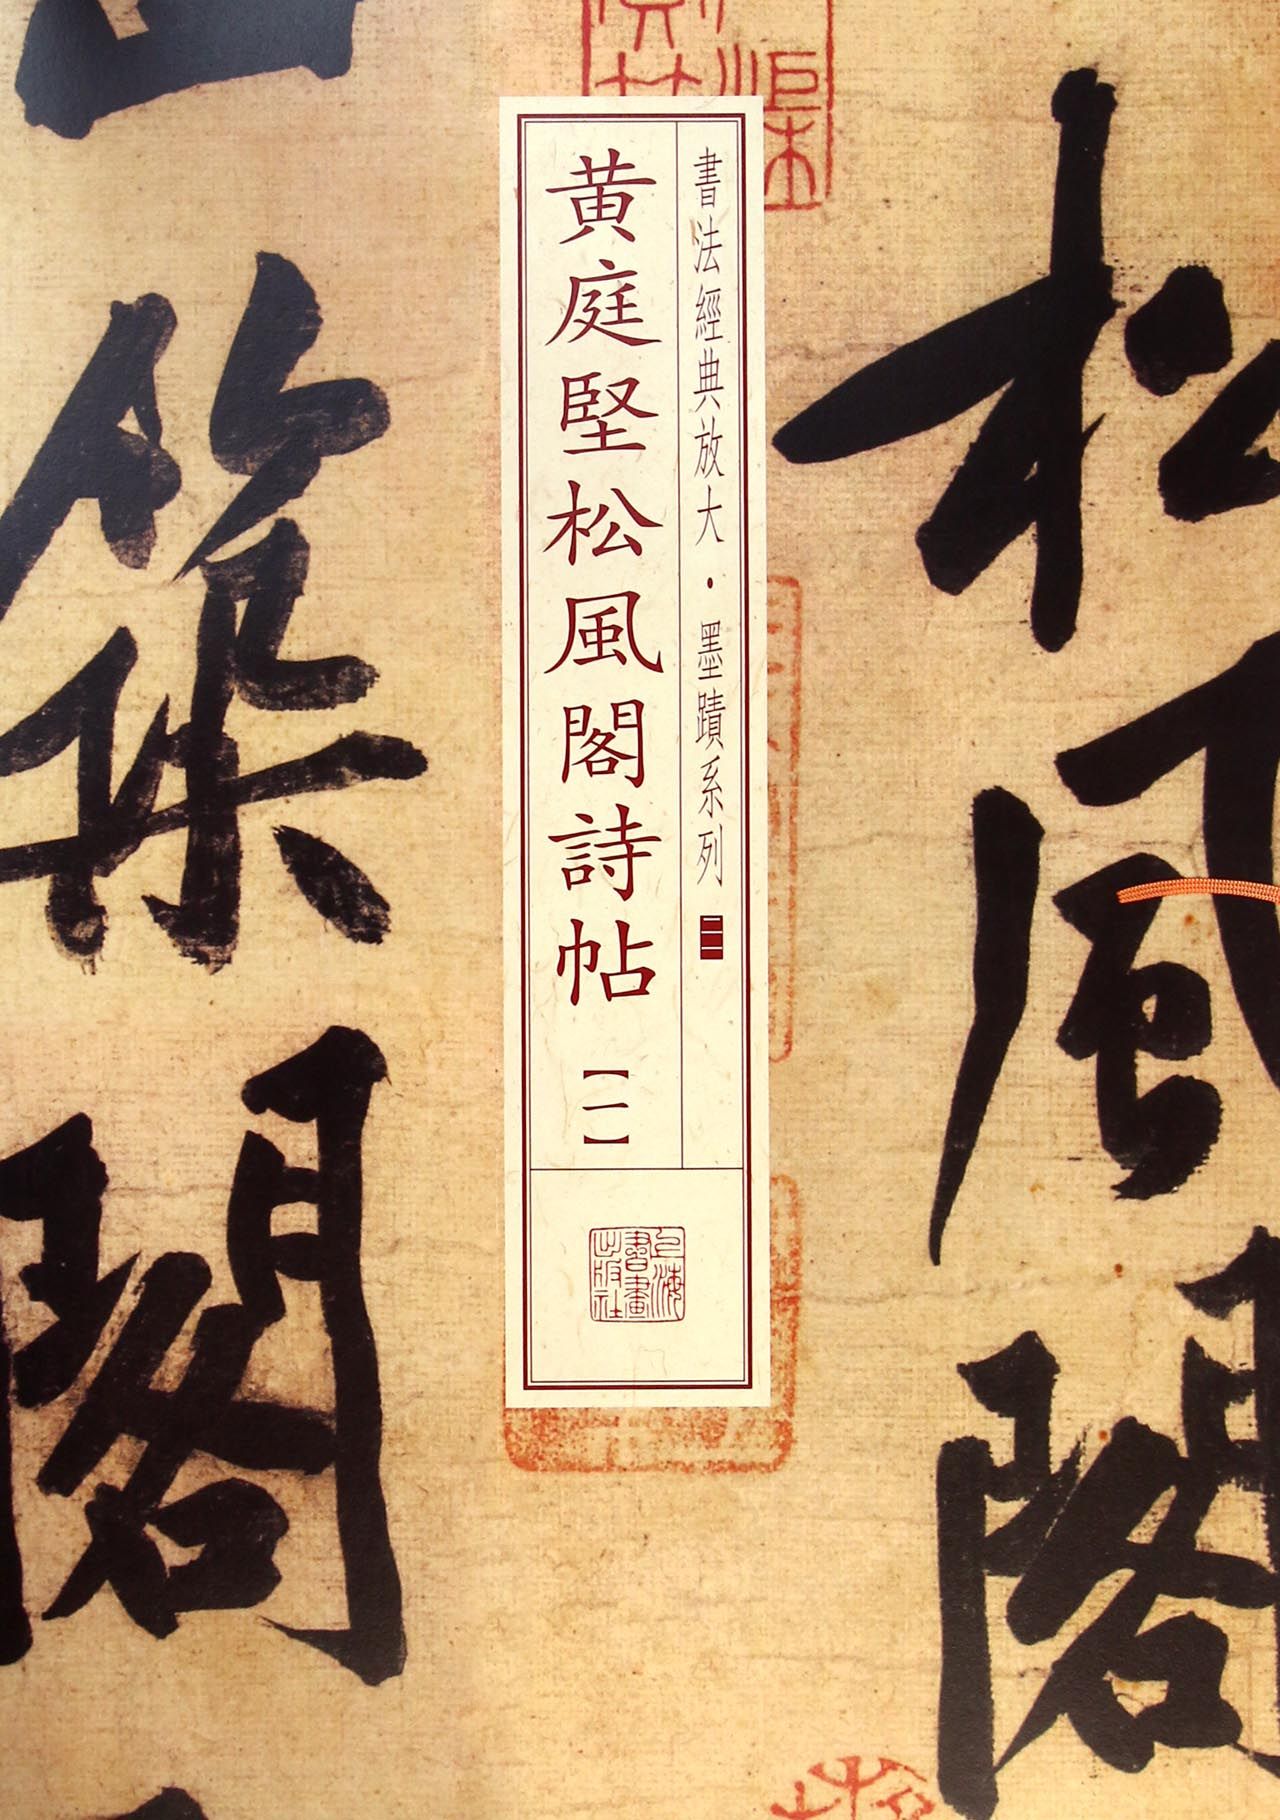 書法經典放大·墨蹟系列
黄庭堅松風閣詩帖
【一】
上海
書畫
出版社
松風閣
築閣